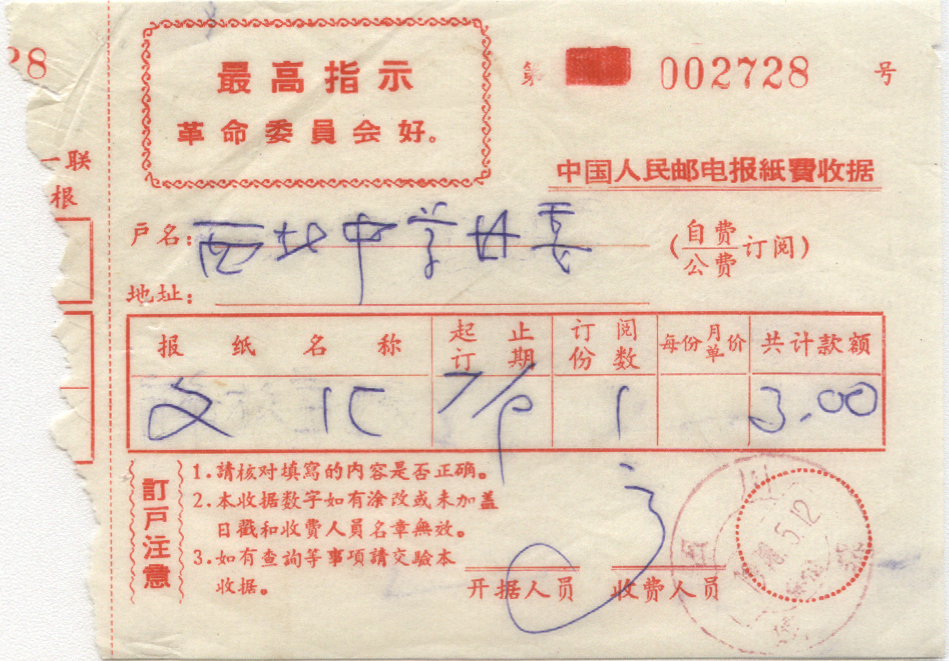 28
最高指示
革命委員会好。
第 002728 号
一联
根
中国人民邮电报紙費收据
户名: 西北中学
(自费 公费 订阅)
地址:
报纸名称 起止订期 订阅份数 每份月单价 共计款额
文汇 7/ 1 3.00
訂戸注意
1.請核对填寫的内容是否正确。
2.本收据数字如有涂改或未加盖
日戳和收费人员名章無效。
3.如有查詢等事項請交驗本
收据。
开据人员 收费人员
5.12